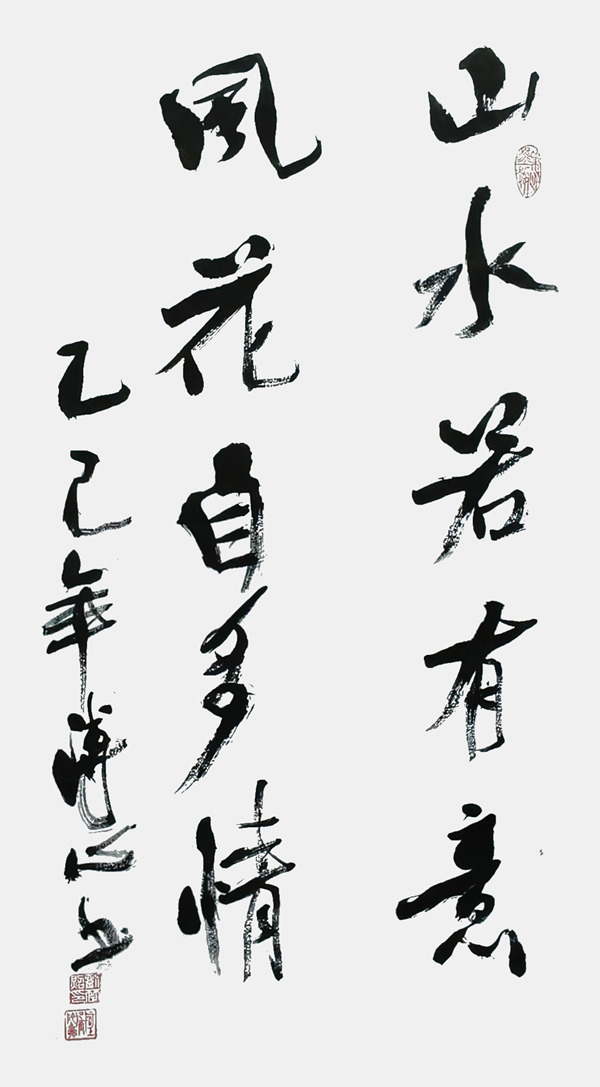 山水若有意
风花自多情
乙巳年溥心书